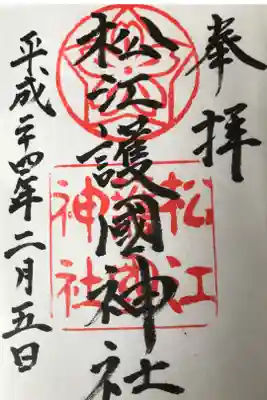 奉拝
松江護國神社
平成二十四年二月五日
松江
神社